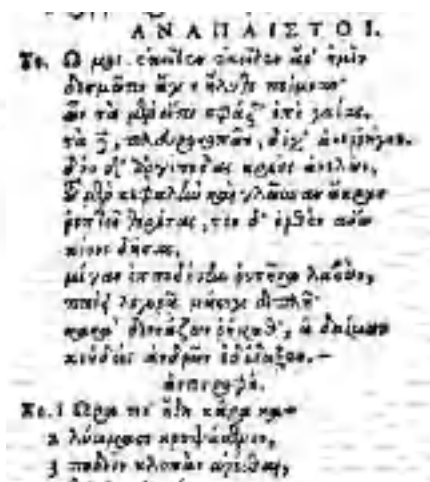 ΑΝΑΠΑΙΣΤΟΙ.
Τε. Ω μοι. ἐκεῖθεν ἐκεῖθεν ἄρ' ἡμῖν
δεσμῶτιν ἄγων ἤλυθε ποίμναν·
ὧν τὰ μὲν εἴσω σφάζ' ἐπὶ γαίας,
τὰ δὲ, πλευροκοπῶν, δίχ' ἀνεῤῥήγνυ.
δύο δ' ἀργίποδας κριοὺς ἀνελὼν,
τοῦ μὲν κεφαλὴν καὶ γλῶσσαν ἄκραν
ῥιπτεῖ θερίσας, τὸν δ' ὀρθὸν ἄνω
κίονι δήσας,
μέγαν ἱπποδέτην ῥυτῆρα λαβὼν,
παίει λιγυρᾷ μάστιγι διπλῇ·
κακὰ δεννάζων ῥήμαθ', ἃ δαίμων
κοὐδεὶς ἀνδρῶν ἐδίδαξεν.—
ἀντιστροφή.
Χο. 1 Ωρα τιν' ἤδη κάρα κα-
2 λύμμασι κρυψάμενον,
3 ποδοῖν κλοπὰν ἀρέσθαι,